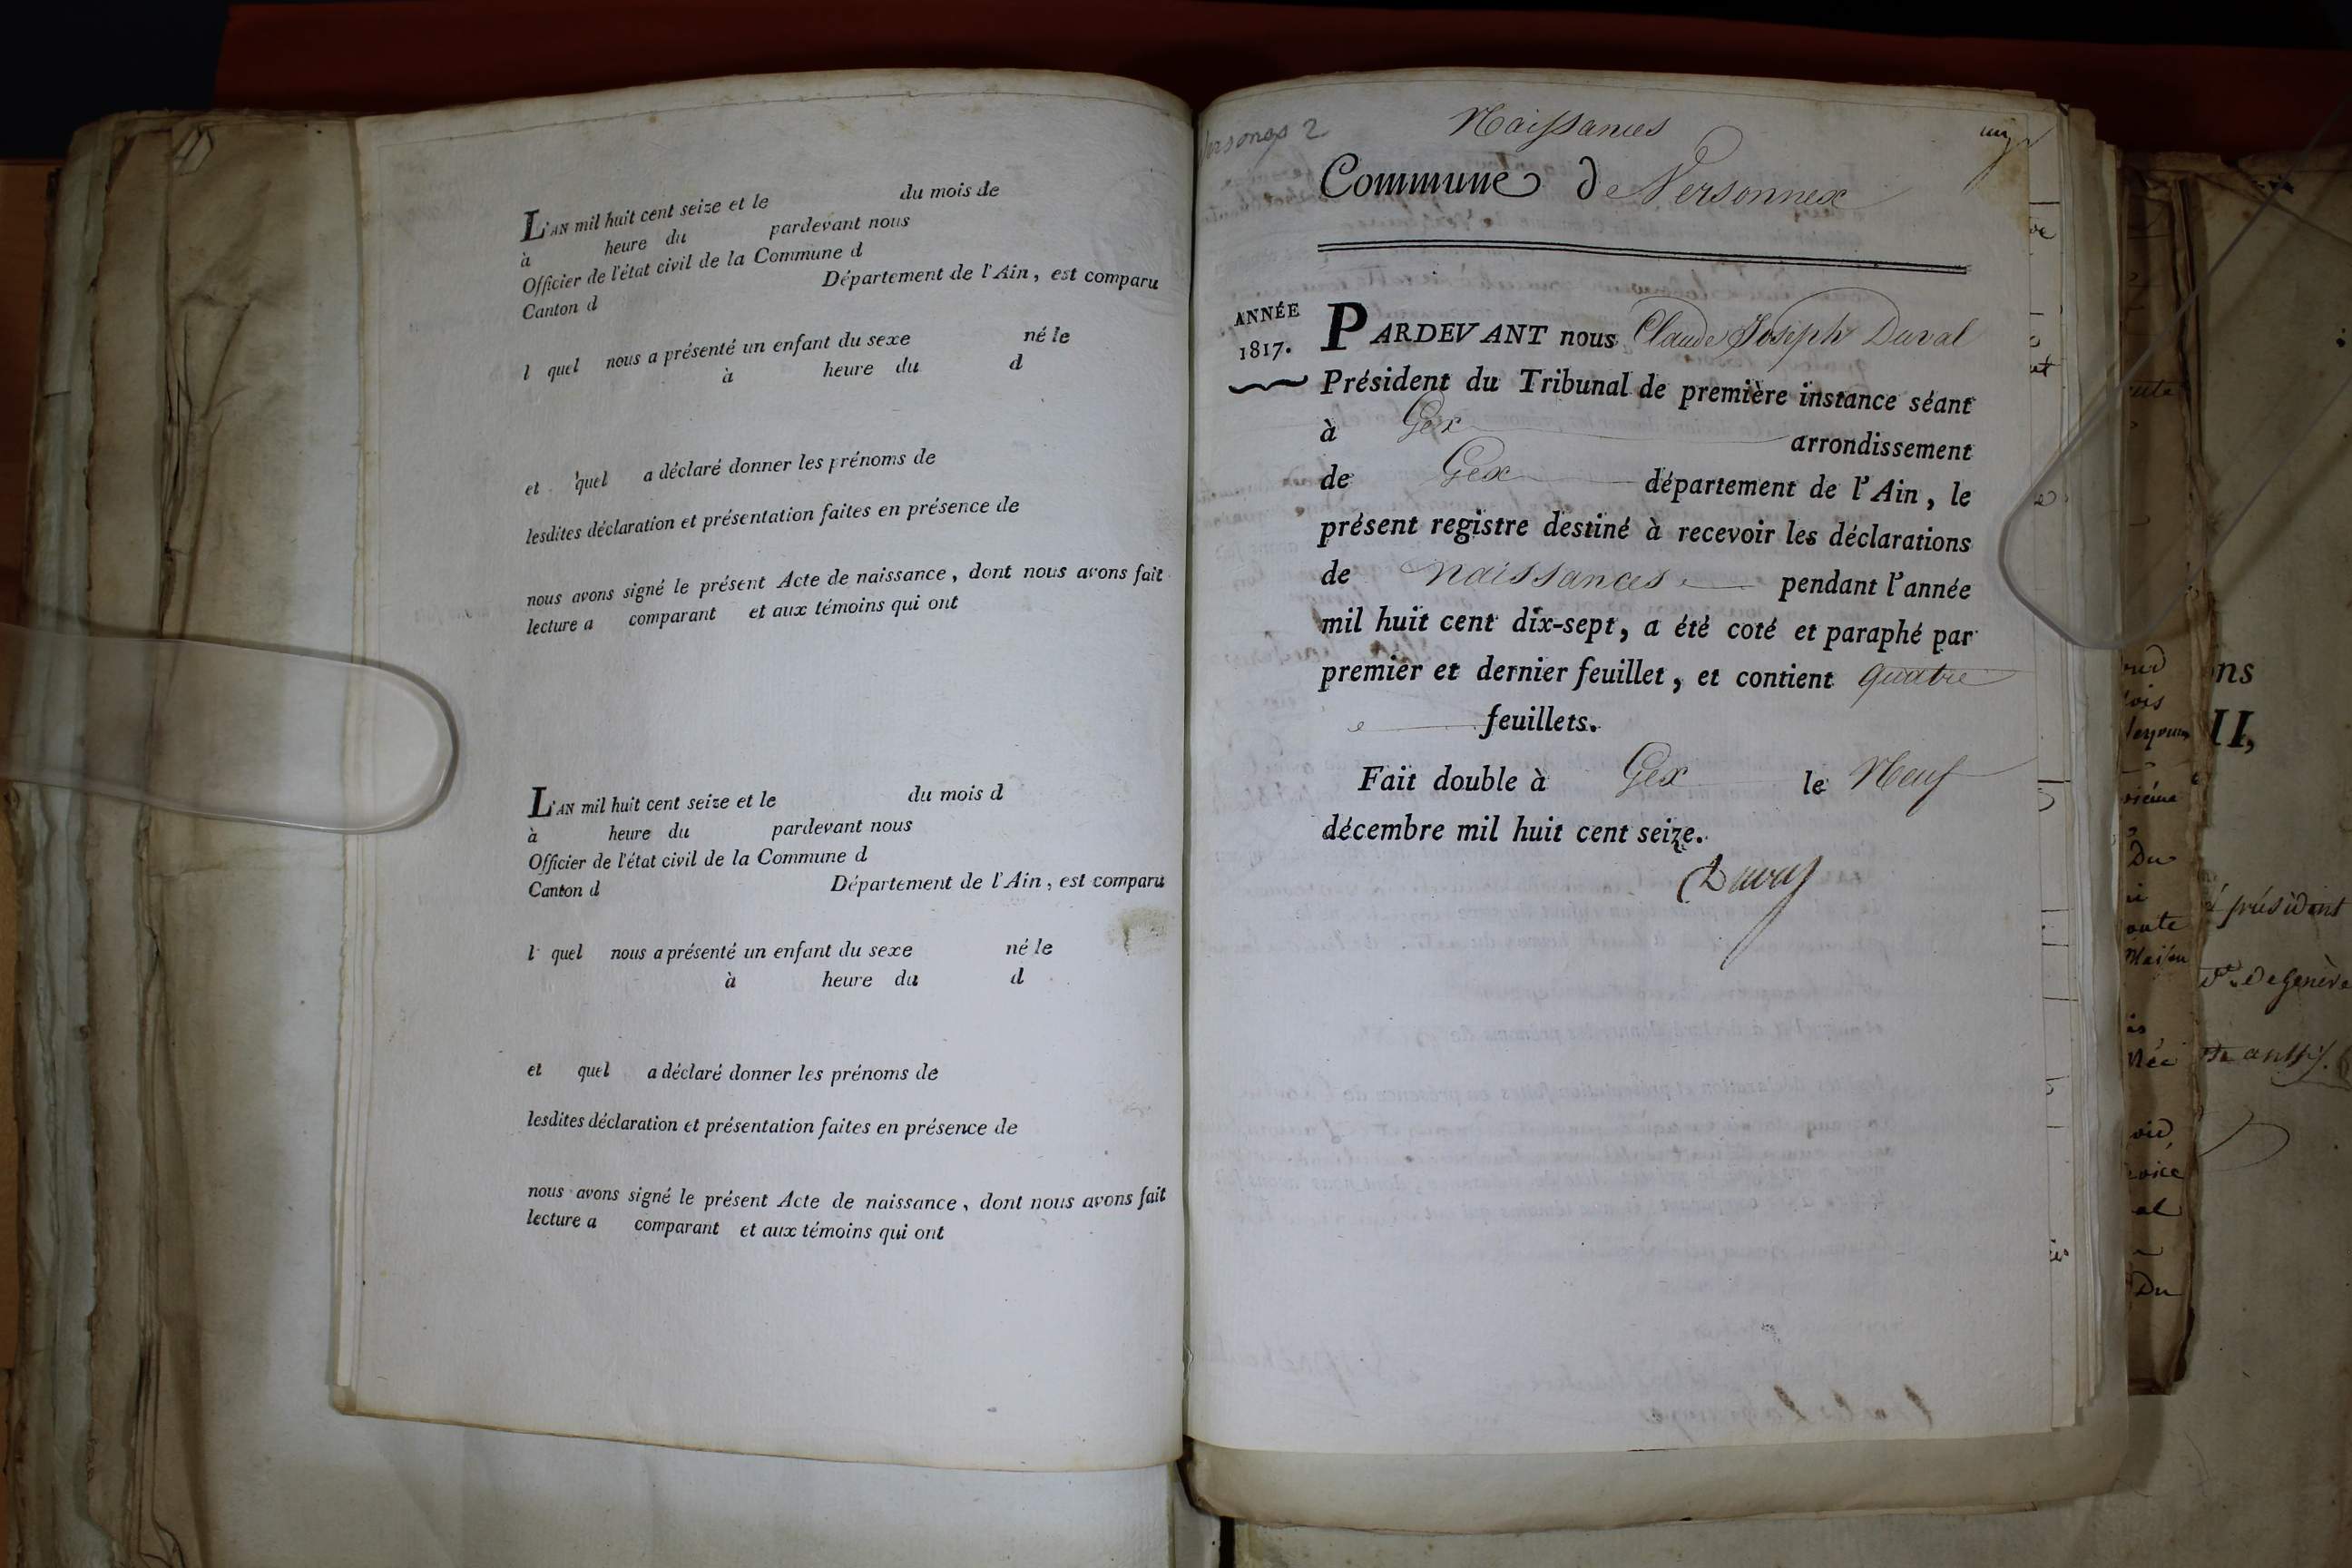 L'AN mil huit cent seize et le du mois de
à heure du pardevant nous
Officier de l'état civil de la Commune d
Canton d Département de l'Ain, est comparu
l quel nous a présenté un enfant du sexe né le
à heure du d
et quel a déclaré donner les prénoms de
lesdites déclaration et présentation faites en présence de
nous avons signé le présent Acte de naissance, dont nous avons fait
lecture a comparant et aux témoins qui ont
L'AN mil huit cent seize et le du mois d
à heure du pardevant nous
Officier de l'état civil de la Commune d
Canton d Département de l'Ain, est comparu
l quel nous a présenté un enfant du sexe né le
à heure du d
et quel a déclaré donner les prénoms de
lesdites déclaration et présentation faites en présence de
nous avons signé le présent Acte de naissance, dont nous avons fait
lecture a comparant et aux témoins qui ont
Naissances
Commune de Versonnex
ANNÉE
1817.
PARDEVANT nous Claude Joseph Duval
Président du Tribunal de première instance séant
à Gex arrondissement
de Gex département de l'Ain, le
présent registre destiné à recevoir les déclarations
de naissances pendant l'année
mil huit cent dix-sept, a été coté et paraphé par
premier et dernier feuillet, et contient quatre
feuillets.
Fait double à Gex le Neuf
décembre mil huit cent seize.
Duval
ons
II,
président
de Genève